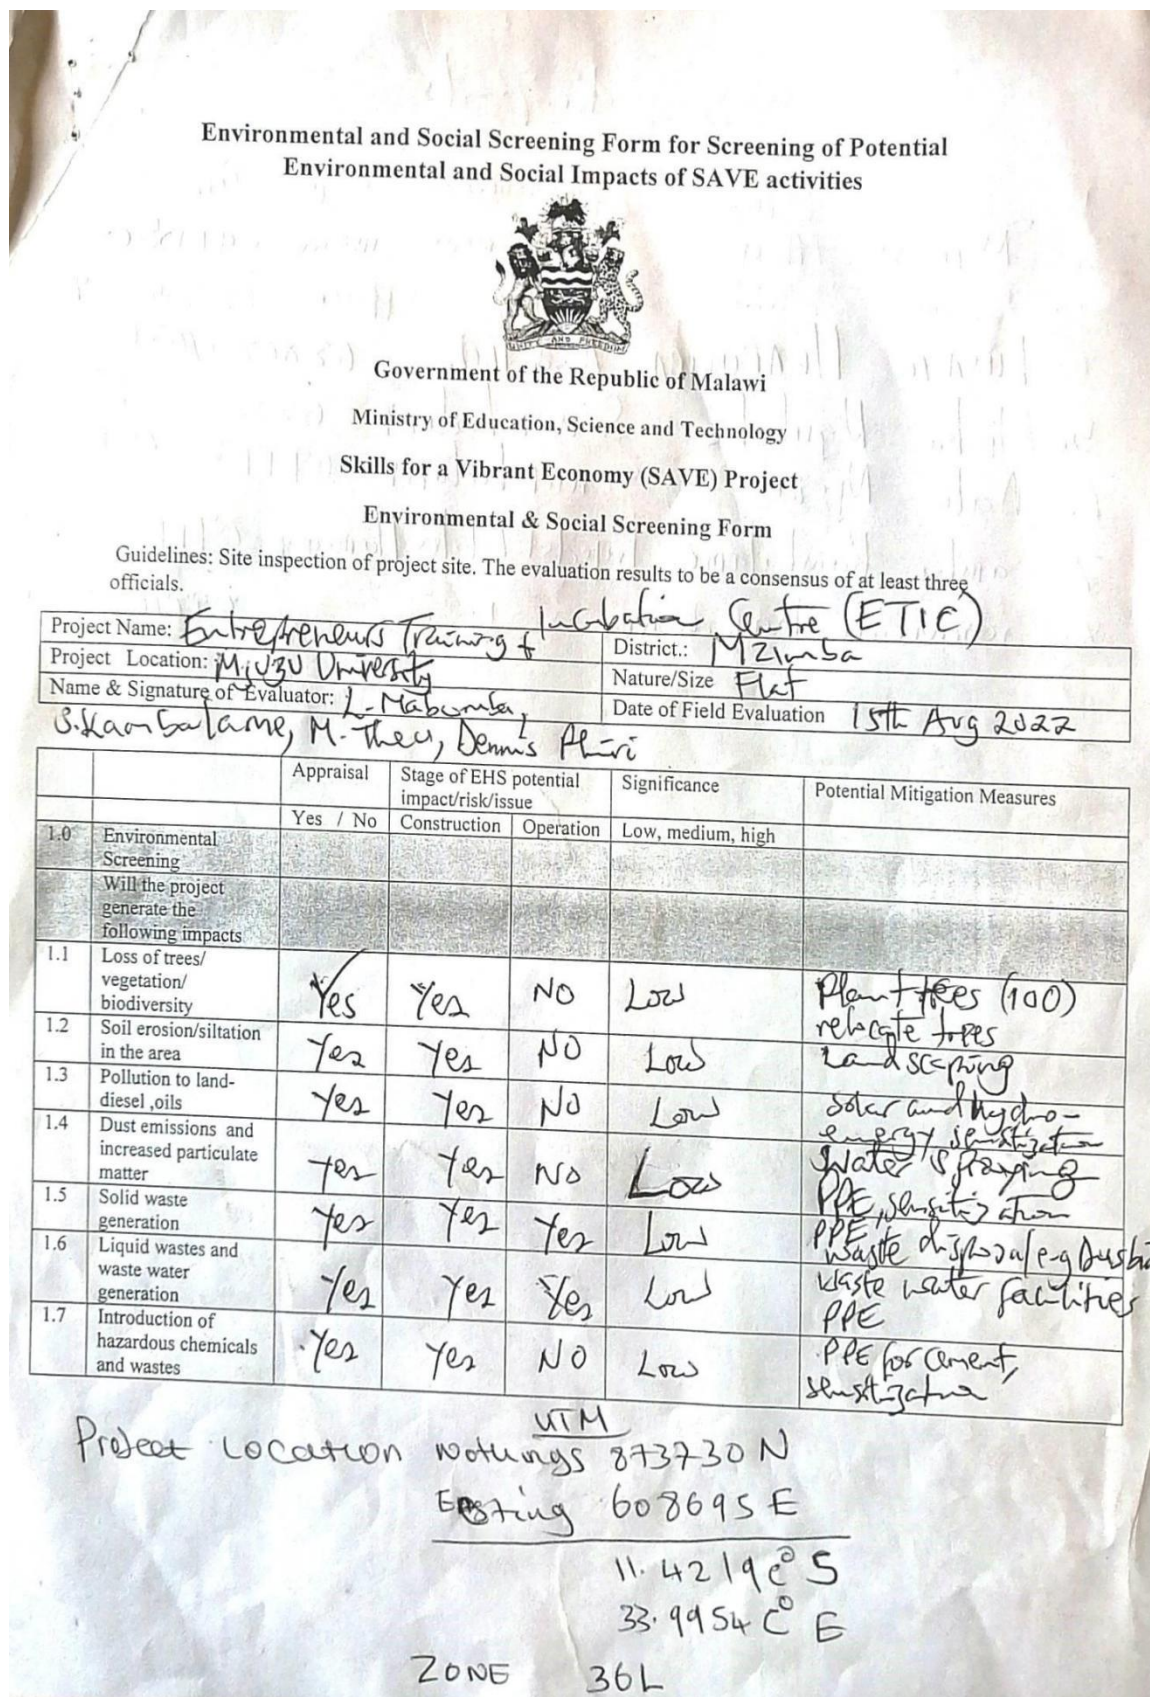 Environmental and Social Screening Form for Screening of Potential
Environmental and Social Impacts of SAVE activities
UNITY AND FREEDOM
Government of the Republic of Malawi
Ministry of Education, Science and Technology
Skills for a Vibrant Economy (SAVE) Project
Environmental & Social Screening Form
Guidelines: Site inspection of project site. The evaluation results to be a consensus of at least three
officials.
Project Name: Entrepreneurs Training & Incubation Centre (ETIC)
District.: Mzimba
Project Location: Mzuzu University
Nature/Size Flat
Name & Signature of Evaluator: L. Mabomba,
S. Kambalame, M. Theu, Dennis Phiri
Date of Field Evaluation 15th Aug 2022
Appraisal Stage of EHS potential Significance Potential Mitigation Measures
impact/risk/issue
Yes / No Construction Operation Low, medium, high
1.0 Environmental
Screening
Will the project
generate the
following impacts
1.1 Loss of trees/
vegetation/
biodiversity
Yes Yes NO Low Plant trees (100)
relocate trees
1.2 Soil erosion/siltation
in the area
Yes Yes NO Low Landscaping
1.3 Pollution to land-
diesel ,oils
Yes Yes NO Low Solar and hydro-
energy, sensitization
1.4 Dust emissions and
increased particulate
matter
Yes Yes NO Low Water spraying
PPE, sensitization
1.5 Solid waste
generation
Yes Yes Yes Low PPE,
waste disposal e.g Dustbi
1.6 Liquid wastes and
waste water
generation
Yes Yes Yes Low waste water facilities
PPE
1.7 Introduction of
hazardous chemicals
and wastes
Yes Yes NO Low PPE for cement,
sensitization
UTM
Project Location Nothings 873730 N
Easting 608695 E
11.4219c° S
33.9954c° E
ZONE 36L